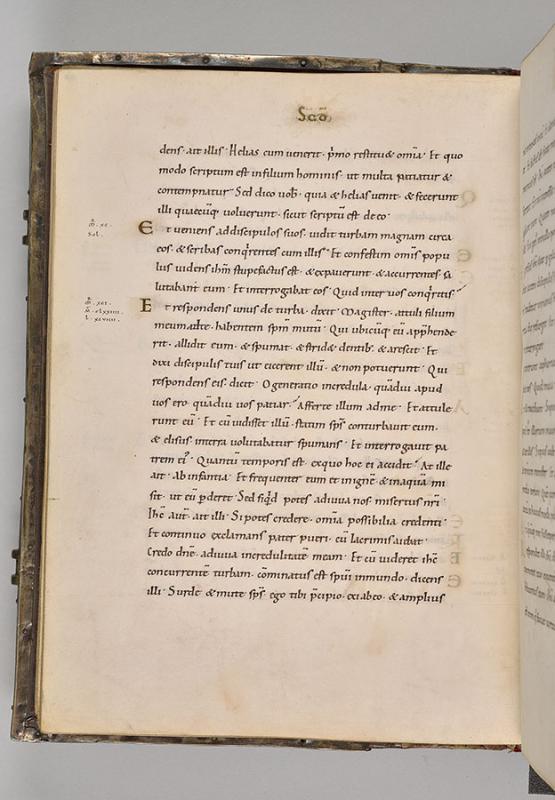 Scdm
dens · ait illis · Helias cum venerit · p̄mo restituet om̄ia · Et quo
modo scriptum est in filium hominis · ut multa patiatur &
contempnatur Sed dico vob̄ · quia & helias venit · & fecerunt
illi quaecūq; voluerunt · sicut scriptū est de eo ·
m̄ · xc ·
Sol ·
Et veniens ad discipulos suos · vidit turbam magnam circa
eos · & scribas conq̄rentes cum illis · Et confestim om̄is popu
lus videns ih̄m stupefactus est · & expaverunt · & accurrentes sa
lutabant eum · Et interrogabat eos · Quid inter vos conq̄ritis ·
m̄ · xci ·
Et respondens unus de turba · dixit · Magister · attuli filium
meum ad te · habentem sp̄m mutū · Qui ubicūq; eū · app̄hende
rit · allidit eum · & spumat · & stridet dentib; · & arescit · Et
dixi discipulis tuis ut eicerent illū · & non potuerunt · Qui
respondens eis · dicit · O generatio incredula · quādiu apud
vos ero · quādiu vos patiar · Afferte illum ad me · Et attule
runt eū · Et cū vidisset illū · statim sp̄s conturbavit eum ·
& elisus in terra volutabatur spumans · Et interrogavit pa
trem ei⁹ · Quantū temporis est · ex quo hoc ei accidit · At ille
ait · Ab infantia · Et frequenter eum et in ignē · & in aquā mi
sit · ut eū p̄deret · Sed siq̄d potes adiuva nos misertus nr̄i ·
Ih̄c aut̄ · ait illi · Si potes credere · om̄ia possibilia credenti ·
Et continuo exclamans pater pueri · cū lacrimis aiebat ·
Credo dn̄e · adiuva incredulitatē meam · Et cū videret ih̄c
concurrentē turbam · cōminatus est spūi inmundo · dicens
illi · Surde & mute sp̄s · ego tibi p̄cipio · exi ab eo · & amplius